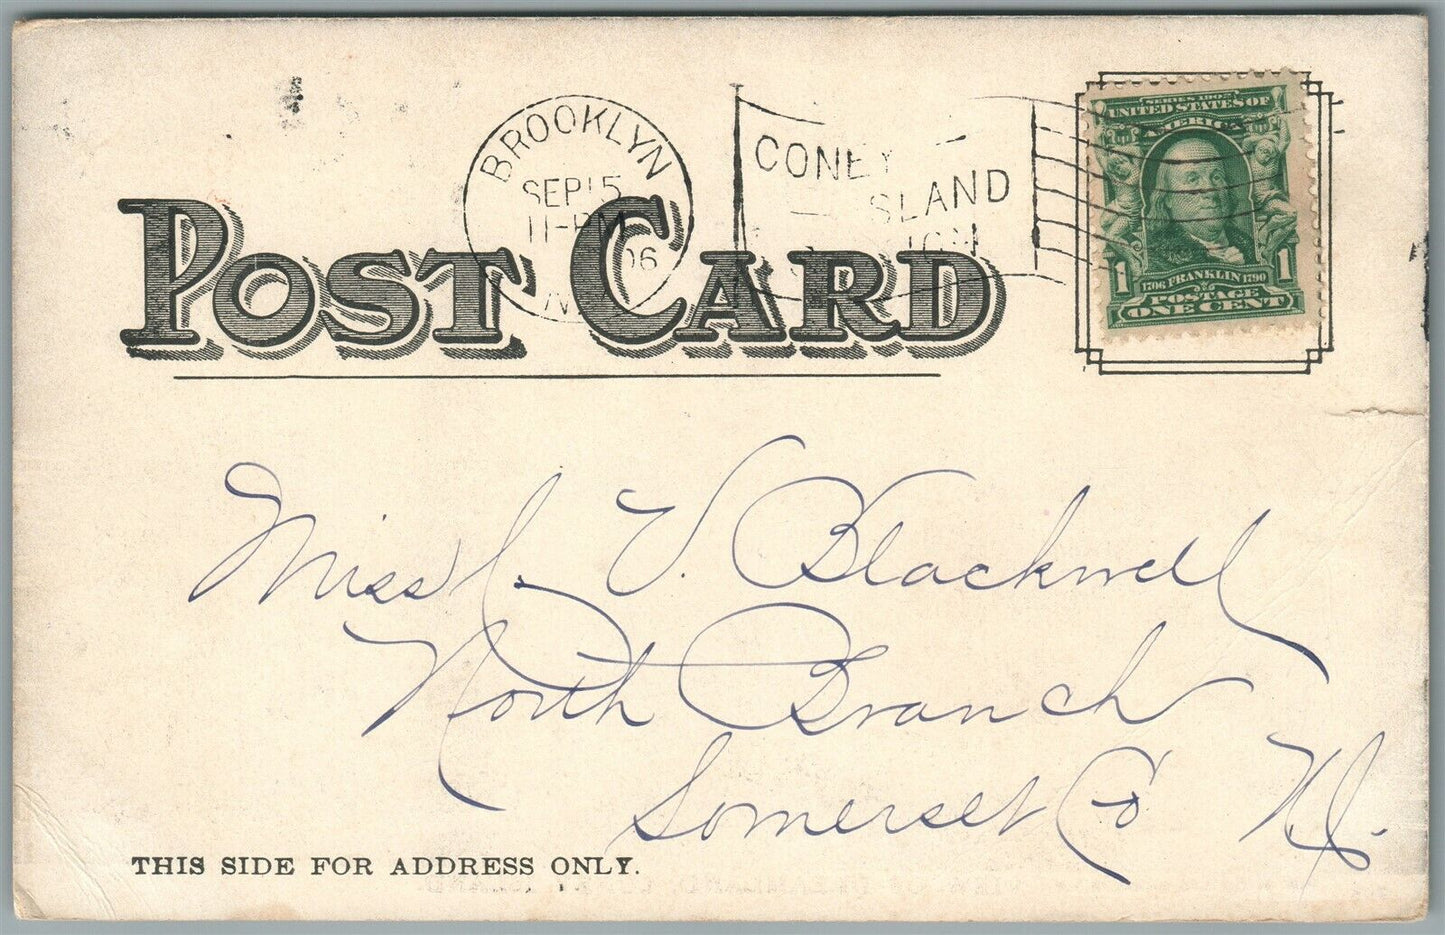 BROOKLYN
SEP 15
11-PM
06
N.Y.
CONEY
ISLAND
STATION
SERIES 1902
UNITED STATES OF
AMERICA
1 1
1706 FRANKLIN 1790
POSTAGE
ONE CENT
POST CARD
Miss J. V. Blackwell
North Branch
Somerset Co N.J.
THIS SIDE FOR ADDRESS ONLY.